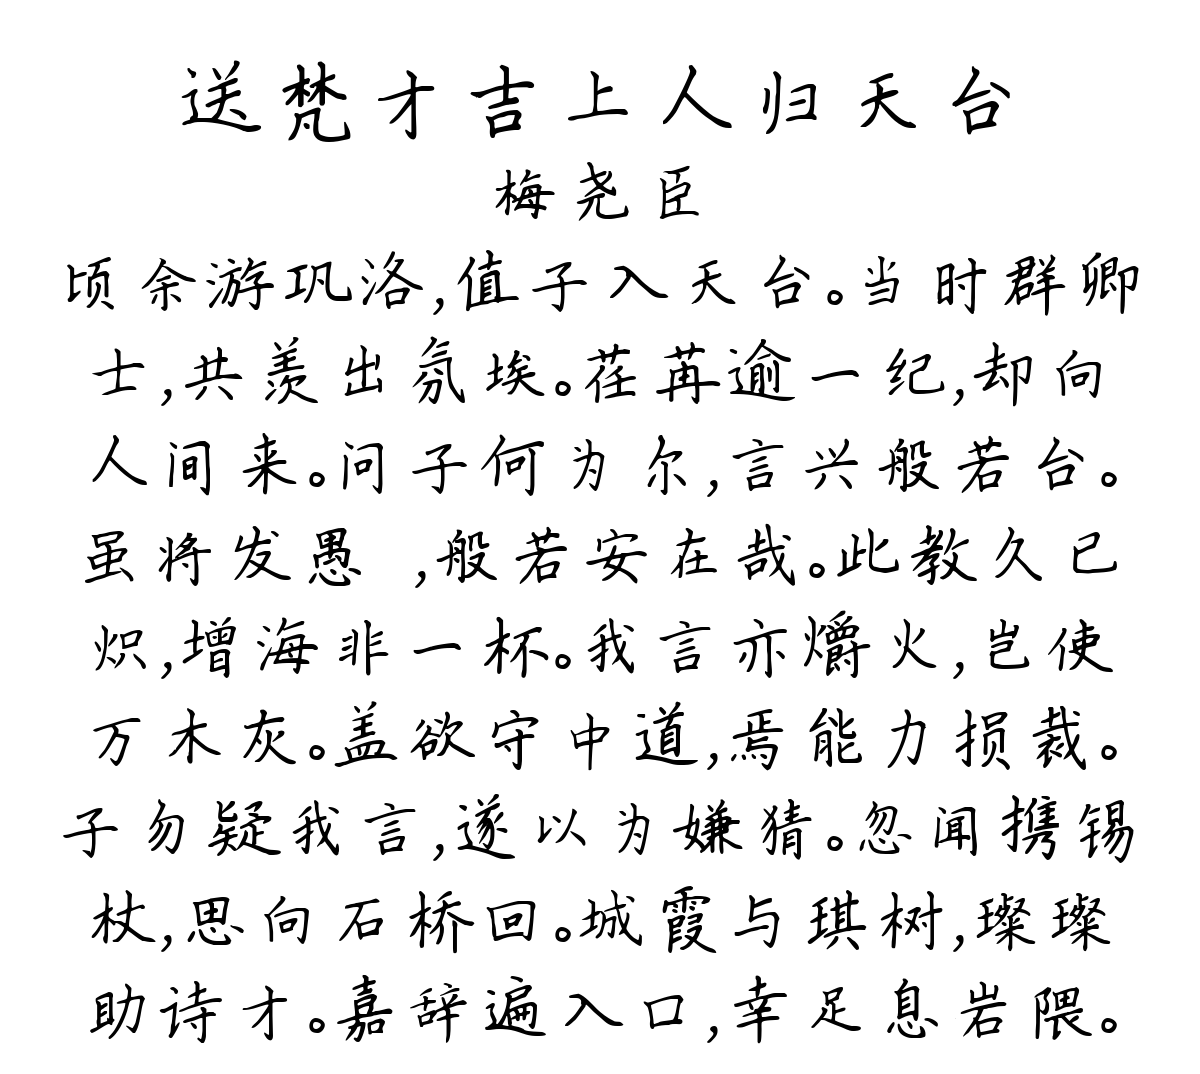 送梵才吉上人归天台
梅尧臣
顷余游巩洛,值子入天台。当时群卿
士,共羡出氛埃。荏苒逾一纪,却向
人间来。问子何为尔,言兴般若台。
虽将发愚 ,般若安在哉。此教久已
炽,增海非一杯。我言亦爝火,岂使
万木灰。盖欲守中道,焉能力损裁。
子勿疑我言,遂以为嫌猜。忽闻携锡
杖,思向石桥回。城霞与琪树,璨璨
助诗才。嘉辞遍入口,幸足息岩隈。